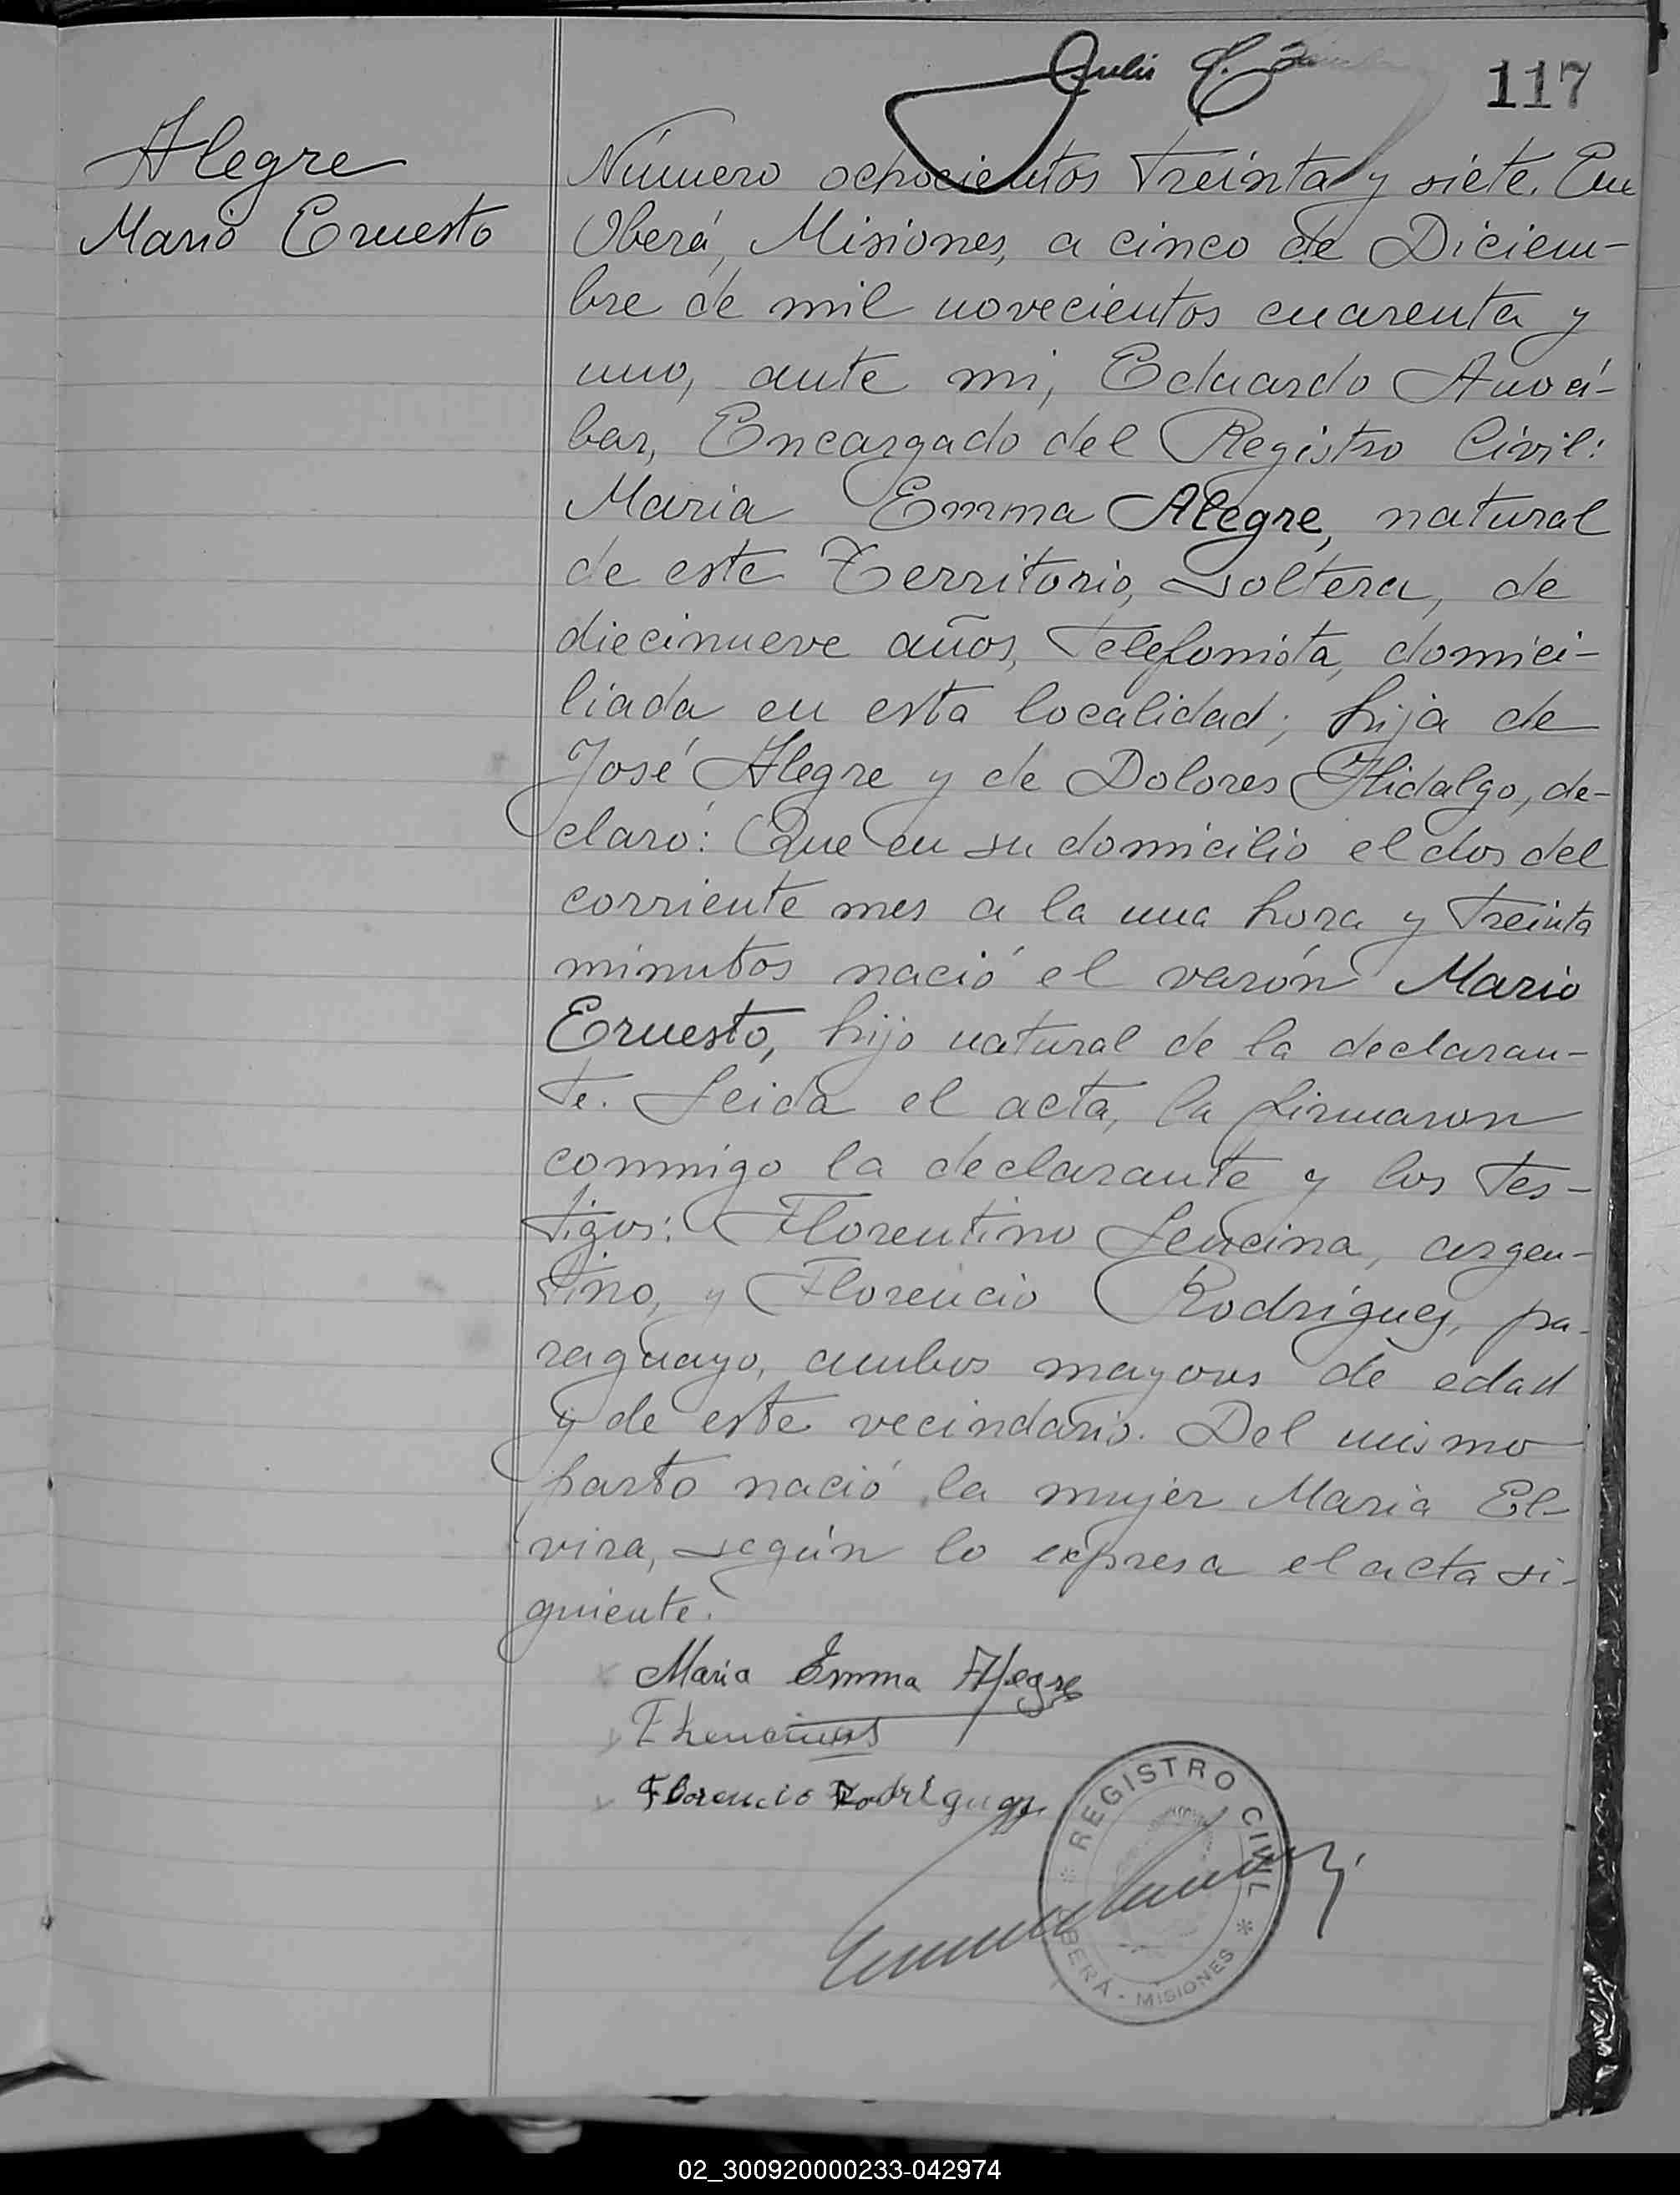 Julio
117
Alegre
Mario Ernesto
Número ochocientos treinta y siete. En
Oberá, Misiones, a cinco de Diciem-
bre de mil novecientos cuarenta y
uno, ante mi, Eduardo Anoá-
bar, Encargado del Registro Civil:
Maria Emma Alegre, natural
de este Territorio, soltera, de
diecinueve años, telefonista, domici-
liada en esta localidad; hija de
José Alegre y de Dolores Hidalgo, de-
claró: Que en su domicilio el dos del
corriente mes a la una hora y treinta
minutos nació el varón Mario
Ernesto, hijo natural de la declaran-
te. Leida el acta, la firmaron
conmigo la declarante y los tes-
tigos: Florentino Lencina, argen-
tino, y Florencio Rodriguez, pa-
raguayo, ambos mayores de edad
y de este vecindario. Del mismo
parto nació la mujer Maria El-
vira, según lo expresa el acta si-
guiente.
Maria Emma Alegre
Florencio Rodriguez
REGISTRO CIVIL
OBERÁ - MISIONES
02_300920000233-042974